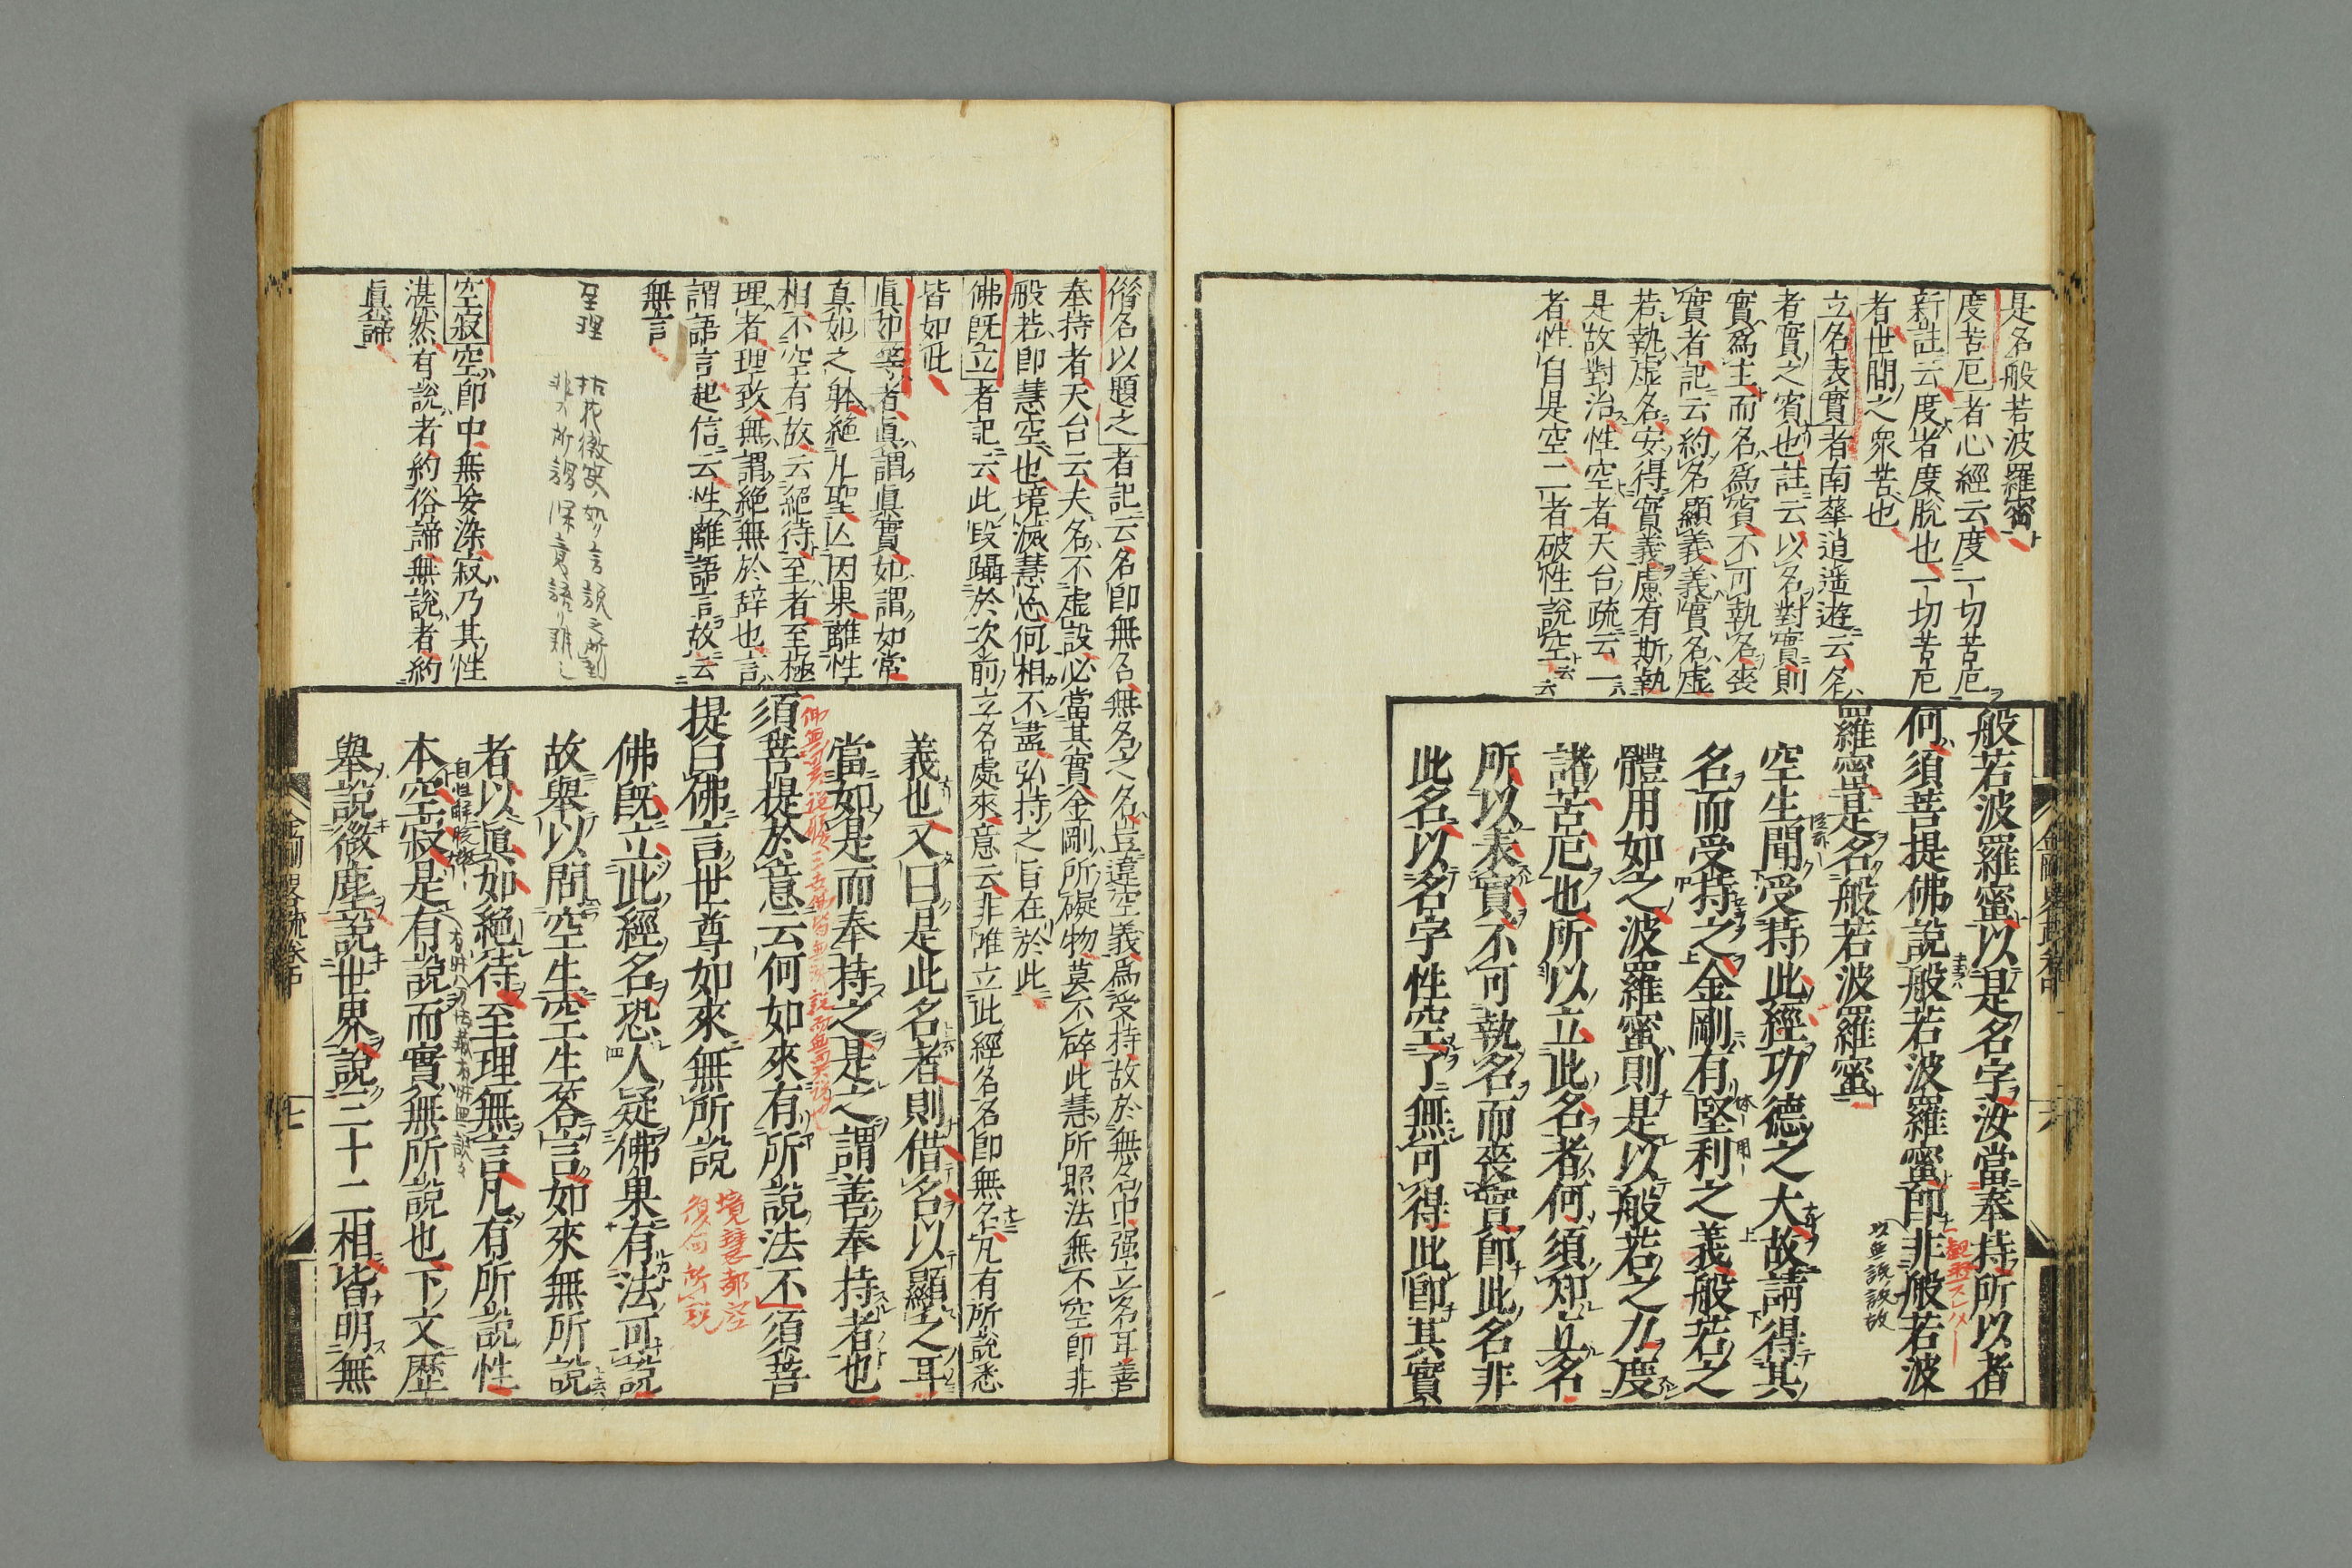 是名般若波羅蜜
度苦厄者心經云度一切苦厄
新註云度者度脫也一切苦厄
者世間之衆苦也
立名表實者南華逍遥遊云名
者實之賓也註云以名對實則
實爲主而名爲賓不可執名喪
實者記云約名顯義義實名虛
若執虛名安得實義慮有斯執
是故對治性空者天台疏云一
者性自是空二者破性說空
般若波羅蜜以是名字汝當奉持所以者
何須菩提佛說般若波羅蜜即非般若波
羅蜜是名般若波羅蜜
空生聞受持此經功德之大故請得其
名而受持之金剛有堅利之義般若之
體用如之波羅蜜則是以般若之力度
諸苦厄也所以立此名者何須知立名
所以表實不可執名而喪實即此名非
此名以名字性空了無可得此即其實
六
借名以題之者記云名即無名無名之名豈違空義爲受持故於無名中强立名耳善
奉持者天台云夫名不虛設必當其實金剛所礙物莫不碎此慧所照法無不空即非
般若即慧空也境滅慧忘何相不盡弘持之旨在於此
佛旣立者記云此段躡於次前立名處來意云非唯立此經名名即無名凡有所說悉
皆如此
眞如等者眞謂眞實如謂如常
真如之躰絶凡聖亾因果離性
相不空有故云絶待至者至極
理者理致無謂絶無於辞也言
謂語言起信云性離語言故云
無言
至理
空寂空即中無妄染寂乃其性
湛然有說者約俗諦無說者約
眞諦
義也又曰是此名者則借名以顯之耳
當如是而奉持之是之謂善奉持者也
須菩提於意云何如來有所說法不須菩
提白佛言世尊如來無所說
境慧都空
復何所說
佛旣立此經名恐人疑佛果有法可說
故舉以問空生空生答言如來無所說
者以眞如絶待至理無言凡有所說性
本空寂是有說而實無所說也下文歷
舉說微塵說世界說三十二相皆明無
金剛畧疏卷中
七